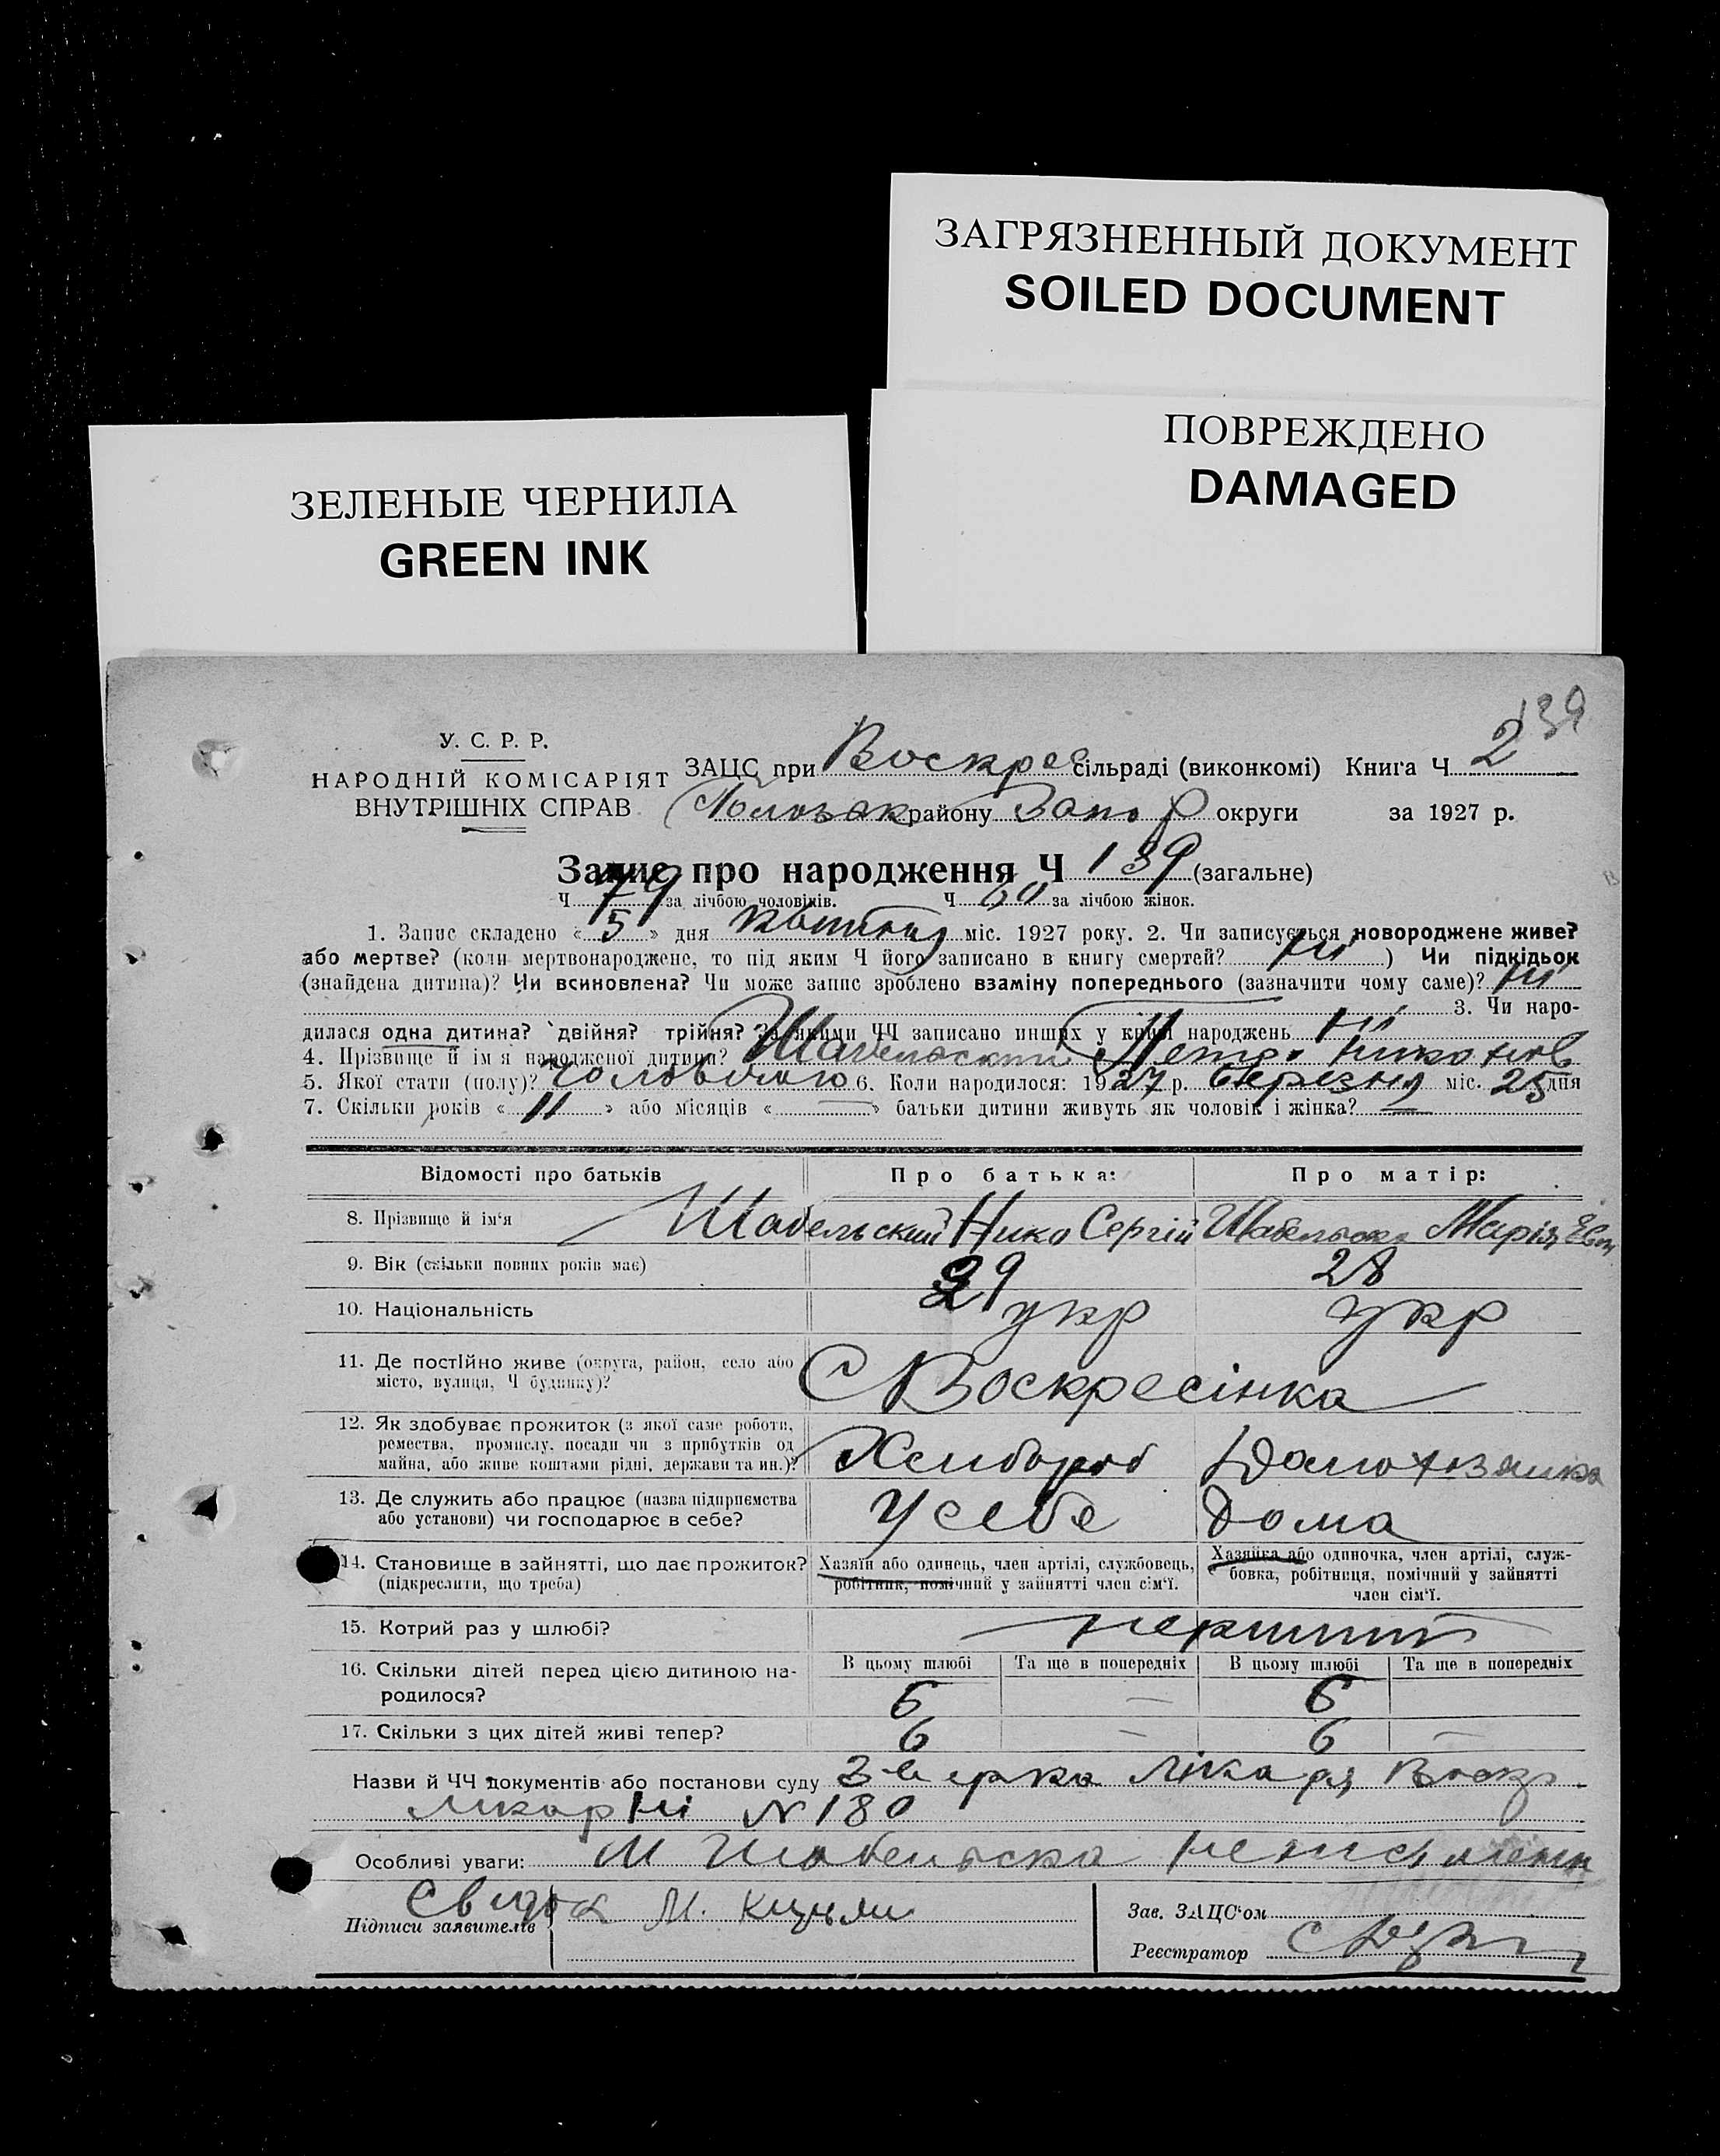 ЗАГРЯЗНЕННЫЙ ДОКУМЕНТ
SOILED DOCUMENT
ПОВРЕЖДЕНО
DAMAGED
ЗЕЛЕНЫЕ ЧЕРНИЛА
GREEN INK
139
У. С. Р. Р.
НАРОДНІЙ КОМІСАРІЯТ
ВНУТРІШНІХ СПРАВ
ЗАЦС при Воскрес сільраді (виконкомі) Книга Ч 2
району Запор округи за 1927 р.
Запис про народження Ч 139 (загальне)
Ч 79 за лічбою чоловіків. Ч 60 за лічбою жінок.
1. Запис складено « 5 » дня квітня міс. 1927 року. 2. Чи записується новороджене живе?
або мертве? (коли мертвонароджене, то під яким Ч його записано в книгу смертей? ні ) Чи підкідьок
(знайдена дитина)? Чи всиновлена? Чи може запис зроблено взаміну попереднього (зазначити чому саме)? ні
3. Чи наро-
дилася одна дитина? двійня? трійня? За якими ЧЧ записано инших у книзі народжень ні
4. Прізвище й ім'я народженої дитини? Шабельский Петро
5. Якої стати (полу)? 6. Коли народилося: 1927 р. березня міс. 25 дня
7. Скільки років « 11 » або місяців « — » батьки дитини живуть як чоловік і жінка? —
Відомості про батьків Про батька: Про матір:
8. Прізвище й ім'я Шабельський Нико Сергій Шабельська Марія
9. Вік (скільки повних років має) 29 28
10. Національність укр укр
11. Де постійно живе (округа, район, село або
місто, вулиця, Ч будинку)? С Воскресінка
12. Як здобуває прожиток (з якої саме роботи,
ремества, промислу, посади чи з прибутків од
майна, або живе коштами рідні, держави та ин.)? Хлибороб
13. Де служить або працює (назва підприємства
або установи) чи господарює в себе? У себе Дома
14. Становище в зайнятті, що дає прожиток?
(підкреслити, що треба)
Хазяїн або одинець, член артілі, службовець,
робітник, помічний у зайнятті член сім'ї.
Хазяйка або одиночка, член артілі, служ-
бовка, робітниця, помічний у зайнятті
член сім'ї.
15. Котрий раз у шлюбі? перший
16. Скільки дітей перед цією дитиною на-
родилося?
В цьому шлюбі Та ще в попередніх В цьому шлюбі Та ще в попередніх
6 — 6
17. Скільки з цих дітей живі тепер? 6 — 6 —
Назви й ЧЧ документів або постанови суду лікаря
N 180
Особливі уваги: М Шабельська
Свидок М.
Підписи заявителів
Зав. ЗАЦС'ом
Реєстратор